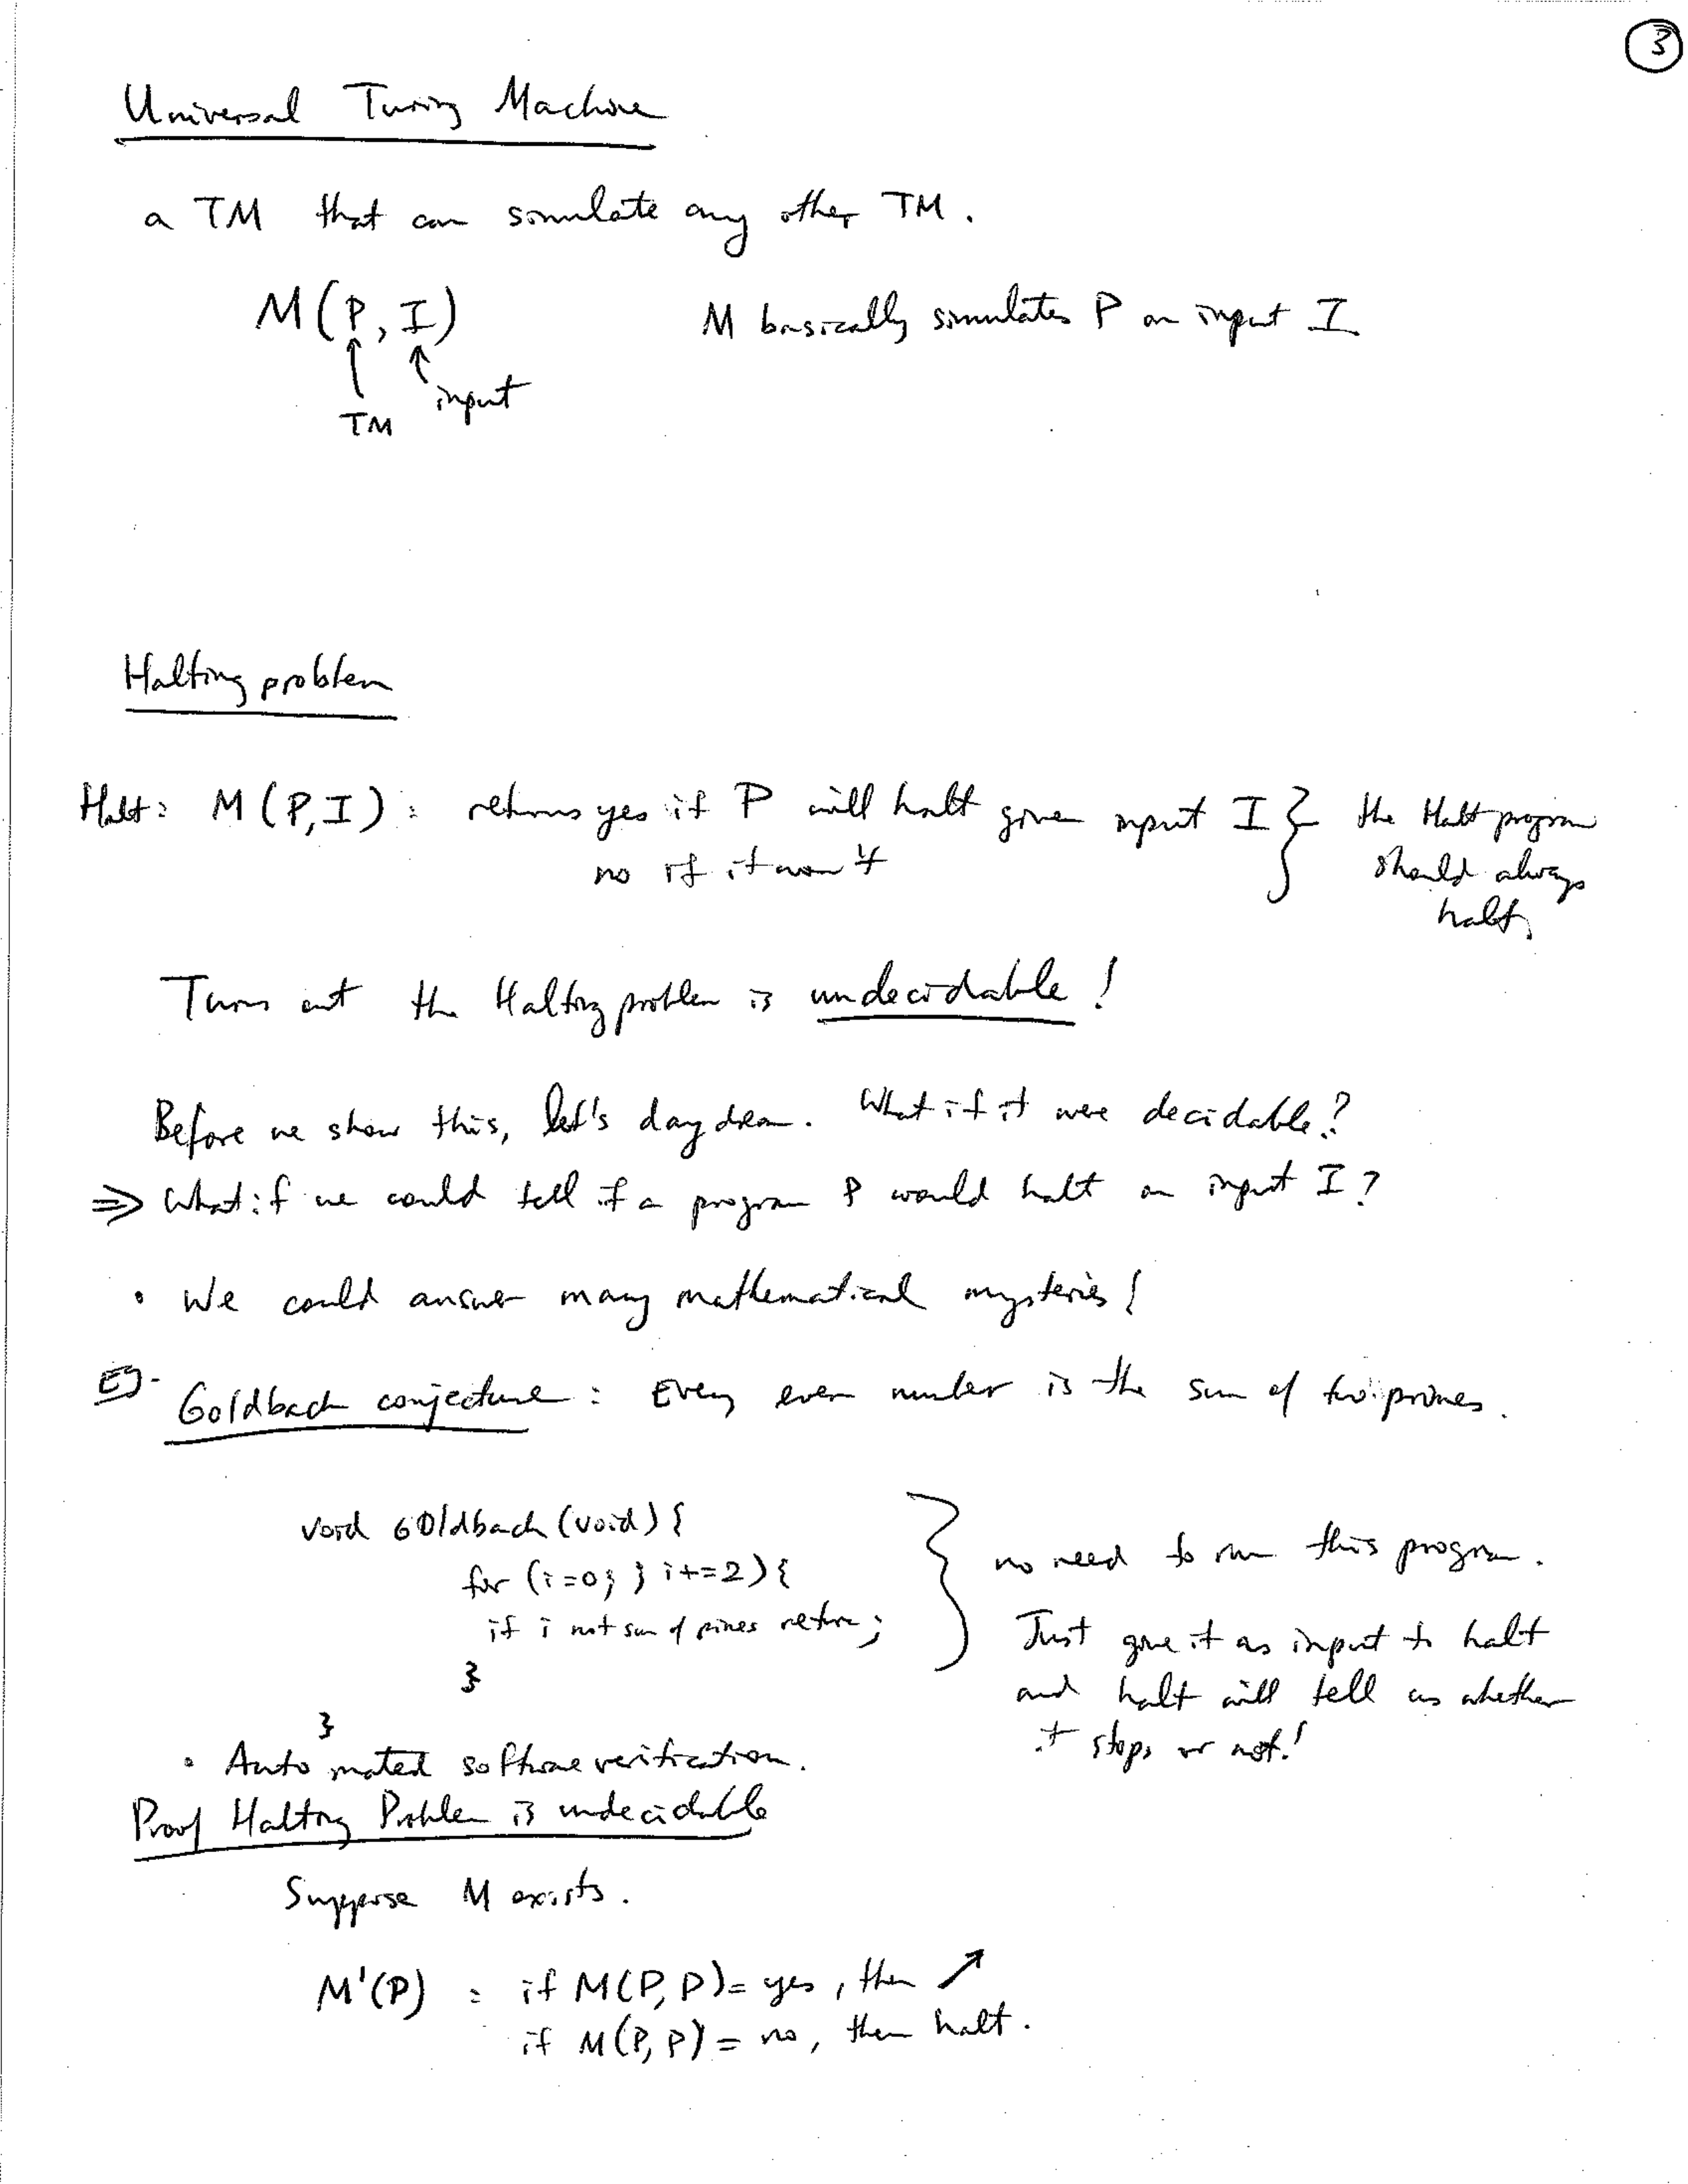 3
Universal Turing Machine
a TM that can simulate any other TM.
M(P, I) M basically simulates P on input I
↑ ↑
input
TM
Halting problem
Halt: M(P,I): returns yes if P will halt given input I } the Halt program
no if it won't should always
halt.
Turns out the Halting problem is undecidable!
Before we show this, let's daydream. What if it were decidable?
⇒ What if we could tell if a program P would halt on input I?
• We could answer many mathematical mysteries!
Eg. Goldbach conjecture: Every even number is the sum of two primes.
void GOldbach (void) {
for (i=0; ; i+=2) {
if i not sum of primes return;
}
}
no need to run this program.
Just give it as input to halt
and halt will tell us whether
it stops or not!
• Automated software verification.
Proof Halting Problem is undecidable
Suppose M exists.
M'(P) : if M(P, P) = yes, then ↗
if M(P, P) = no, then halt.